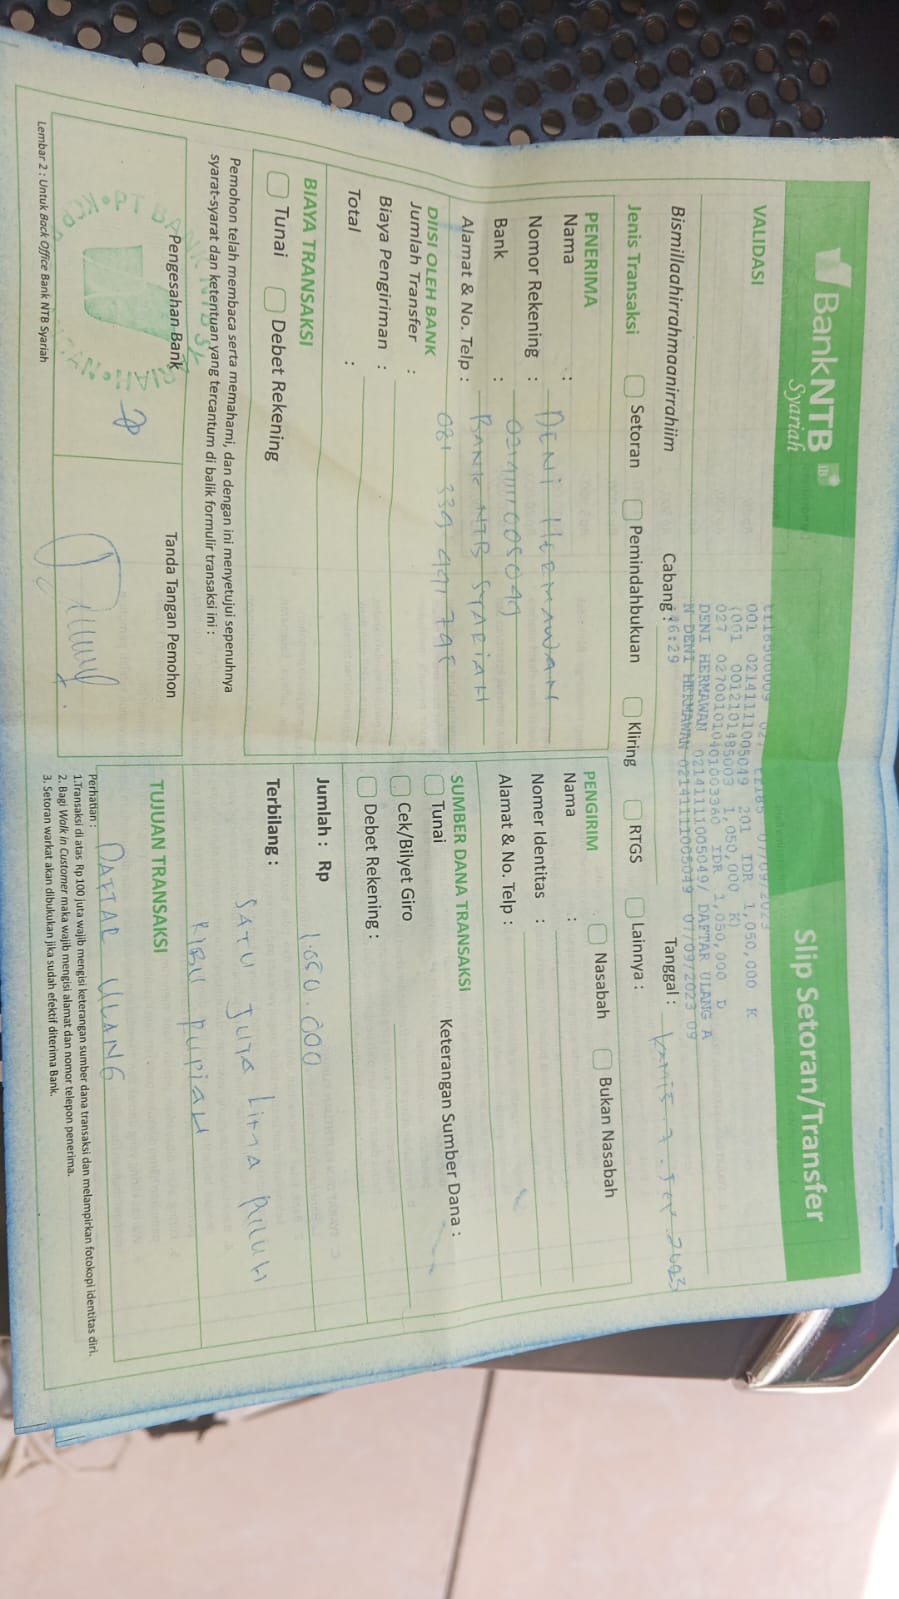 BankNTB
Syariah
Slip Setoran/Transfer
VALIDASI
07/09/2023
001 02141111005049 201 IDR 1,050,000 K
(001 0012101485003 1,050,000 K)
027 027001010401003360 IDR 1,050,000 D
DENI HERMAWAN 02141111005049/ DAFTAR ULANG A
N DENI HERMAWAN 02141111005049 07/09/2023 09
:46:29
Bismillaahirrahmaanirrahiim
Cabang :
Tanggal : Kamis 7. 2023
Jenis Transaksi
Setoran
Pemindahbukuan
Kliring
RTGS
Lainnya :
PENERIMA
Nama : DENI HERMAWAN
Nomor Rekening : 02141111005049
Bank : BANK NTB SYARIAH
Alamat & No. Telp : 081 339 491 795
DIISI OLEH BANK
Jumlah Transfer :
Biaya Pengiriman :
Total :
BIAYA TRANSAKSI
Tunai
Debet Rekening
PENGIRIM
Nasabah
Bukan Nasabah
Nama :
Nomer Identitas :
Alamat & No. Telp :
SUMBER DANA TRANSAKSI
Tunai
Keterangan Sumber Dana :
Cek/Bilyet Giro
Debet Rekening :
Jumlah : Rp 1.050.000
Terbilang : SATU JUTA LIMA PULUH
RIBU RUPIAH
Pemohon telah membaca serta memahami, dan dengan ini menyetujui sepenuhnya
syarat-syarat dan ketentuan yang tercantum di balik formulir transaksi ini :
Pengesahan Bank
Tanda Tangan Pemohon
PT BANK NTB
TUJUAN TRANSAKSI
DAFTAR ULANG
Perhatian :
1.Transaksi di atas Rp 100 juta wajib mengisi keterangan sumber dana transaksi dan melampirkan fotokopi identitas diri.
2. Bagi Walk in Customer maka wajib mengisi alamat dan nomor telepon penerima.
3. Setoran warkat akan dibukukan jika sudah efektif diterima Bank.
Lembar 2 : Untuk Back Office Bank NTB Syariah